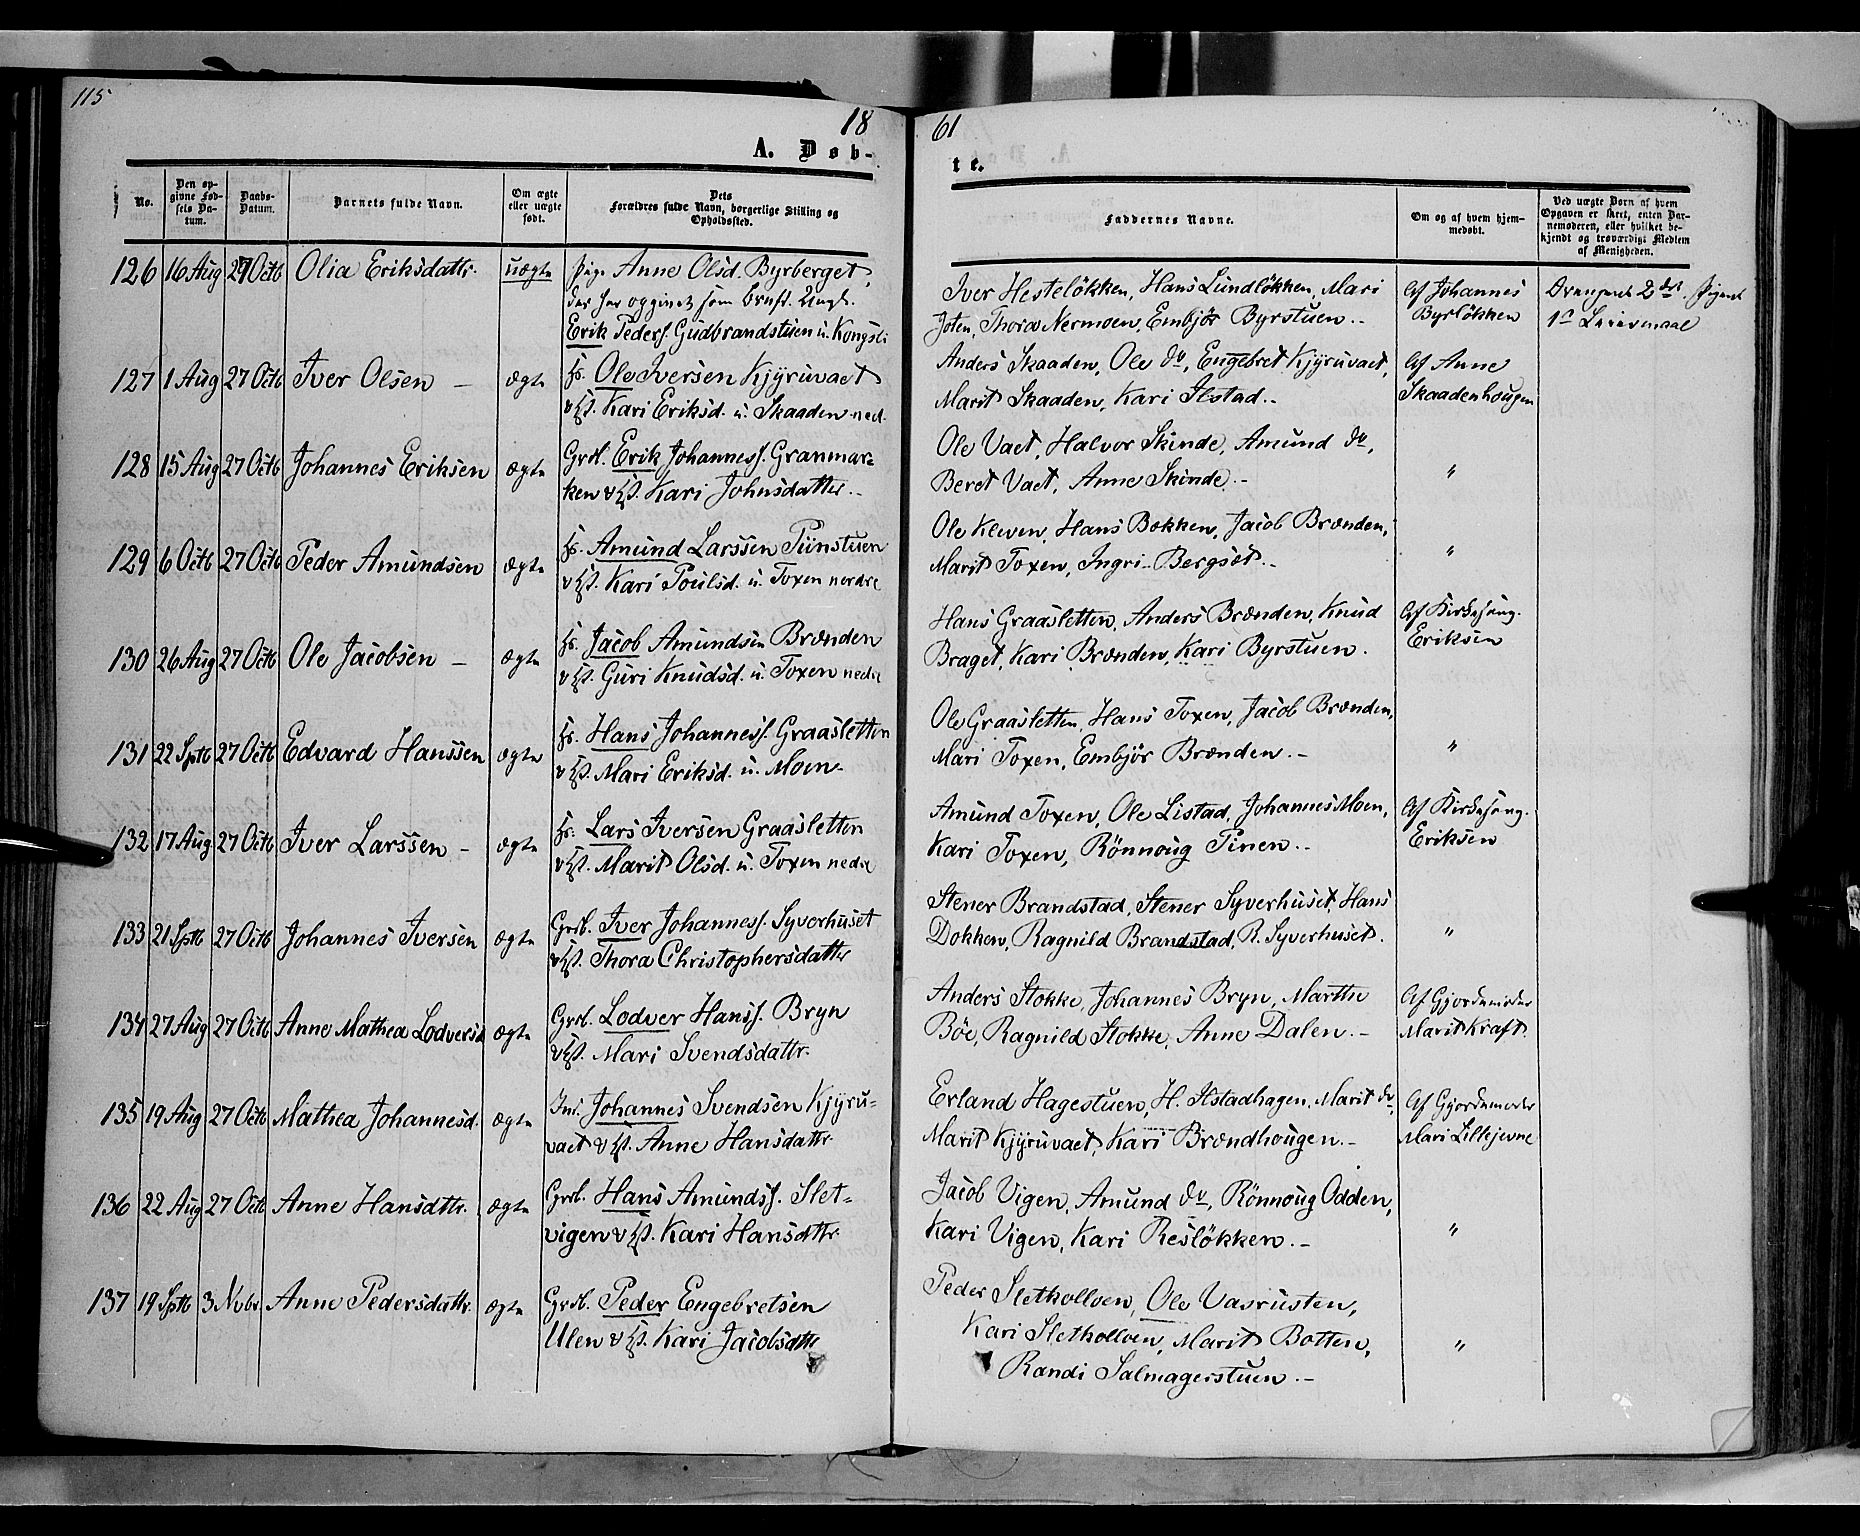 115
18
61
A. Døb-
te.
No.
Den op-
givne Fød-
sels Da-
tum.
Daabs-
Datum.
Barnets fulde Navn.
Om ægte
eller uægte
født.
Dets
Forældres fulde Navn, borgerlige Stilling og
Opholdssted.
Faddernes Navne.
Om og af hvem hjem-
medøbt.
Ved uægte Børn af hvem
Opgaven er skeet, enten Bar-
nemoderen, eller hvilket be-
kjendt og troværdigt Medlem
af Menigheden.
126 16 Aug 27 Octb Olia Eriksdattr. uægte Pige Anne Olsd. Byrberget,
der har opgivet som Barnef. Ungk.
Erik Peders. Gudbrandstuen u. Kongsli
Iver Hesteløkken, Hans Lundløkken, Mari
Joten, Thora Nermoen, Embjør Byrstuen.-
Af Johannes
Byrløkken
Drengens 2det. Pigens
1ste Leiermaal
127 1 Aug 27 Octb Iver Olsen - ægte Hs. Ole Iversen Kjÿruvaet
& Hst. Kari Eriksd. u. Skaaden ned.
Anders Skaaden, Ole do, Engebret Kjÿruvaet,
Marit Skaaden, Kari Ilstad.-
Af Anne
Skaadenhougen
128 15 Aug 27 Octb Johannes Eriksen ægte Grdb. Erik Johanness. Granmar-
ken & Hst. Kari Johnsdatter.-
Ole Vaet, Halvor Skinde, Amund do,
Beret Vaet, Anne Skinde.-
"
129 6 Octb 27 Octb Peder Amundsen ægte Hs. Amund Larssen Piinstuen
& Hst. Kari Poulsd. u. Toxen nordre
Ole Kleven, Hans Bakken, Jacob Brænden,
Marit Toxen, Ingri Bergsët.-
"
130 26 Aug 27 Octb Ole Jacobsen - ægte Hs. Jacob Amundsen Brænden
& Hst. Guri Knudsd. u. Toxen nedre
Hans Graasletten, Anders Brænden, Knud
Braget, Kari Brænden, Kari Byrstuen.
Af Kirkesang.
Eriksen
131 22 Sptb 27 Octb Edvard Hanssen ægte Hs. Hans Johanness. Graasletten
& Hst. Mari Eriksd. u. Moen-
Ole Graasletten, Hans Toxen, Jacob Brænden,
Mari Toxen, Embjør Brænden.-
"
132 17 Aug 27 Octb Iver Larssen - ægte Hs. Lars Iversen Graasletten
& Hst. Marit Olsd. u. Toxen nedre
Amund Toxen, Ole Listad, Johannes Moen,
Kari Toxen, Rønnoug Tinen.-
Af Kirkesang.
Eriksen
133 21 Sptb 27 Octb Johannes Iversen ægte Grdb. Iver Johanness. Syverhuset
& Hst. Thora Christophersdatter
Stener Brandstad, Stener Syverhuset, Hans
Dokken, Ragnild Brandstad, R. Syverhuset.
"
134 27 Aug 27 Octb Anne Mathea Lodversd ægte Grdb. Lodver Hanss. Bryn
& Hst. Mari Svendsdattr.
Anders Stokke, Johannes Bryn, Marthe
Bøe, Ragnild Stokke, Anne Dalen.-
Af Gjordemoder
Marit Kraft.
135 19 Aug 27 Octb Mathea Johannesd. ægte Ind. Johannes Svendsen Kjÿru-
vaet & Hst. Anne Hansdattr.
Erland Hagestuen, H. Ilstadhagen, Marit do,
Marit Kjÿruvaet, Kari Brændhougen.-
Af Gjordemoder
Mari Lillejevne
136 22 Aug 27 Octb Anne Hansdttr. ægte Grdb. Hans Amundss. Slet-
vigen & Hst. Kari Hansdttr.
Jacob Vigen, Amund do, Rønnoug Odden,
Kari Vigen, Kari Resløkken.-
"
137 19 Sptb 3 Nvbr. Anne Pedersdattr. ægte Grdb. Peder Engebretsen
Ulen & Hst. Kari Jacobsdttr
Peder Slethollen, Ole Vasrusten,
Kari Slethollen, Marit Botten,
Randi Salmagerstuen.-
"